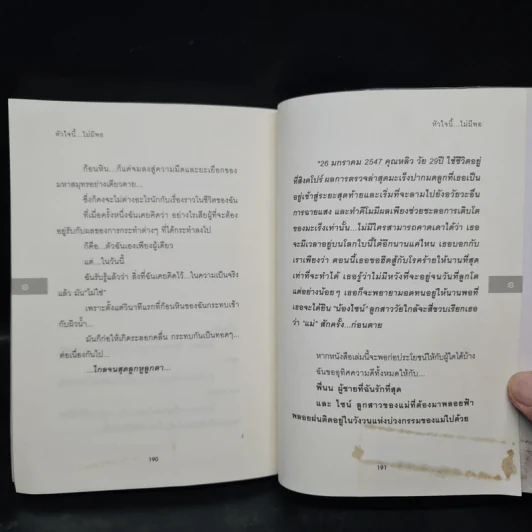 หัวใจนี้...ไม่มีพอ
ก้อนหิน...ก็แค่จมลงสู่ความมืดและยะเยือกของ
มหาสมุทรอย่างเดียวดาย...
ซึ่งก็คงจะไม่ต่างอะไรนักกับเรื่องราวในชีวิตของฉัน
ที่เมื่อครั้งหนึ่งฉันเคยคิดว่า อย่างไรเสียผู้ที่จะต้อง
อยู่รับกับผลของการกระทำต่างๆ ที่ได้กระทำลงไป
ก็คือ...ตัวฉันเองเพียงผู้เดียว
แต่...ในวันนี้
ฉันรับรู้แล้วว่า สิ่งที่ฉันเคยคิดไว้...ในความเป็นจริง
แล้ว มัน"ไม่ใช่"
เพราะตั้งแต่วินาทีแรกที่ก้อนหินของฉันกระทบเข้า
กับผิวน้ำ...
มันก็ก่อให้เกิดระลอกคลื่น กระทบกันเป็นทอดๆ...
ต่อเนื่องกันไป...
...ไกลจนสุดลูกหูลูกตา...
190
หัวใจนี้...ไม่มีพอ
"26 มกราคม 2547 คุณหลิว วัย 29ปี ใช้ชีวิตอยู่
ที่สิงคโปร์ ผลการตรวจล่าสุดมะเร็งปากมดลูกที่เธอเป็น
อยู่เข้าสู่ระยะสุดท้ายและเริ่มที่จะลามไปยังอวัยวะอื่น
การฉายแสง และทำคีโมมีผลเพียงช่วยชะลอการเติบโต
ของมะเร็งเท่านั้น...ไม่มีใครสามารถคาดเดาได้ว่า เธอ
จะมีเวลาอยู่บนโลกใบนี้ได้อีกนานแค่ไหน เธอบอกกับ
เราเพียงว่า ตอนนี้เธอขอยืดสู้กับโรคร้ายให้นานที่สุด
เท่าที่จะทำได้ เธอรู้ว่าไม่มีหวังที่จะอยู่จนวันที่ลูกโต
แต่อย่างน้อยๆ เธอก็จะพยายามอดทนอยู่ให้นานพอที่
เธอจะได้ยิน "น้องไซน์" ลูกสาววัยใกล้จะสี่ขวบเรียกเธอ
ว่า "แม่" สักครั้ง...ก่อนตาย
หากหนังสือเล่มนี้จะพอก่อประโยชน์ให้กับผู้ใดได้บ้าง
ฉันขออุทิศความดีทั้งหมดให้กับ...
พี่นน ผู้ชายที่ฉันรักที่สุด
และ ไซน์ ลูกสาวของแม่ที่ต้องมาพลอยฟ้า
พลอยฝนติดอยู่ในวังวนแห่งบ่วงกรรมของแม่ไปด้วย
191